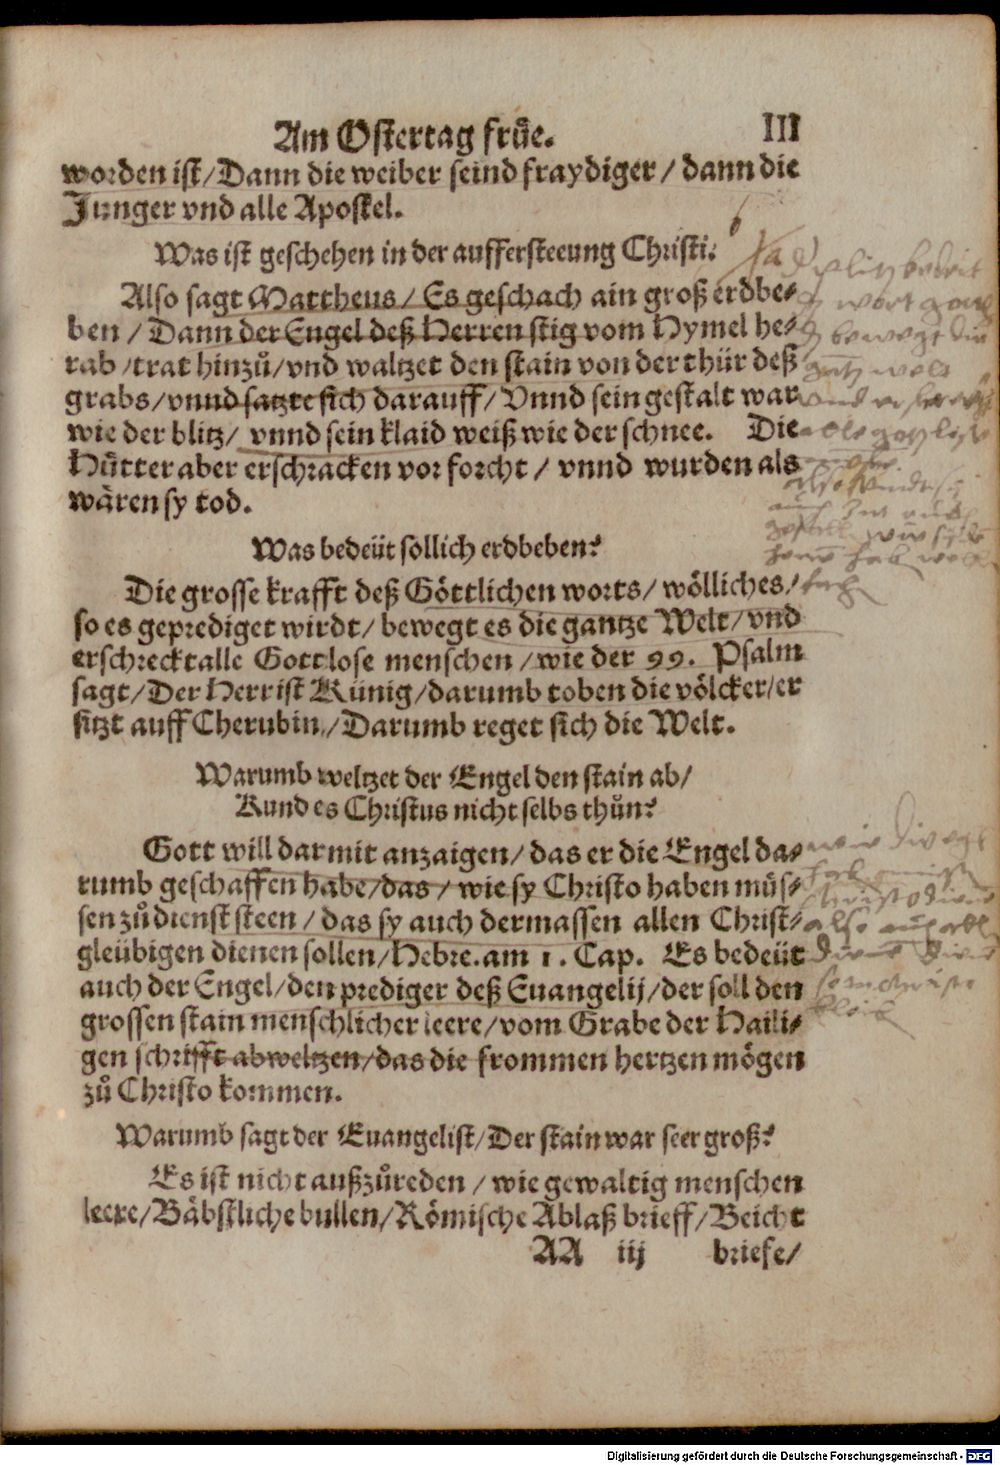 Am Ostertag früe. III
worden ist/Dann die weiber seind fraydiger/dann die
Junger vnd alle Apostel.
Was ist geschehen in der aufferſteeung Christi?
Also sagt Mattheus/Es geschach ain groß erdbe-
ben/Dann der Engel deß Herren stig vom Hymel he-
rab/trat hinzů/vnd waltzet den stain von der thür deß
grabs/vnnd satzte sich darauff/Vnnd sein gestalt war
wie der blitz/vnnd sein klaid weiß wie der schnee. Die
Hütter aber erschracken vor forcht/vnnd wurden als
wären sy tod.
Was bedeüt sollich erdbeben?
Die grosse krafft deß Göttlichen worts/wölliches/
so es geprediget wirdt/bewegt es die gantze Welt/vnd
erschreckt alle Gottlose menschen/wie der 99. Psalm
sagt/Der Herr ist Künig/darumb toben die völcker/er
sitzt auff Cherubin/Darumb reget sich die Welt.
Warumb weltzet der Engel den stain ab/
Kund es Christus nicht selbs thůn?
Gott will darmit anzaigen/das er die Engel da-
rumb geschaffen habe/das/wie sy Christo haben müs-
sen zů dienst steen/das sy auch dermassen allen Christ-
gleübigen dienen sollen/Hebre. am 1. Cap. Es bedeüt
auch der Engel/den prediger deß Euangelij/der soll den
grossen stain menschlicher leere/vom Grabe der Haili-
gen schrifft abweltzen/das die frommen hertzen mögen
zů Christo kommen.
Warumb sagt der Euangelist/Der stain war seer groß?
Es ist nicht außzůreden/wie gewaltig menschen
leere/Bäbstliche bullen/Römische Ablaß brieff/Beicht
AA iij briefe/
Digitalisierung gefördert durch die Deutsche Forschungsgemeinschaft - DFG